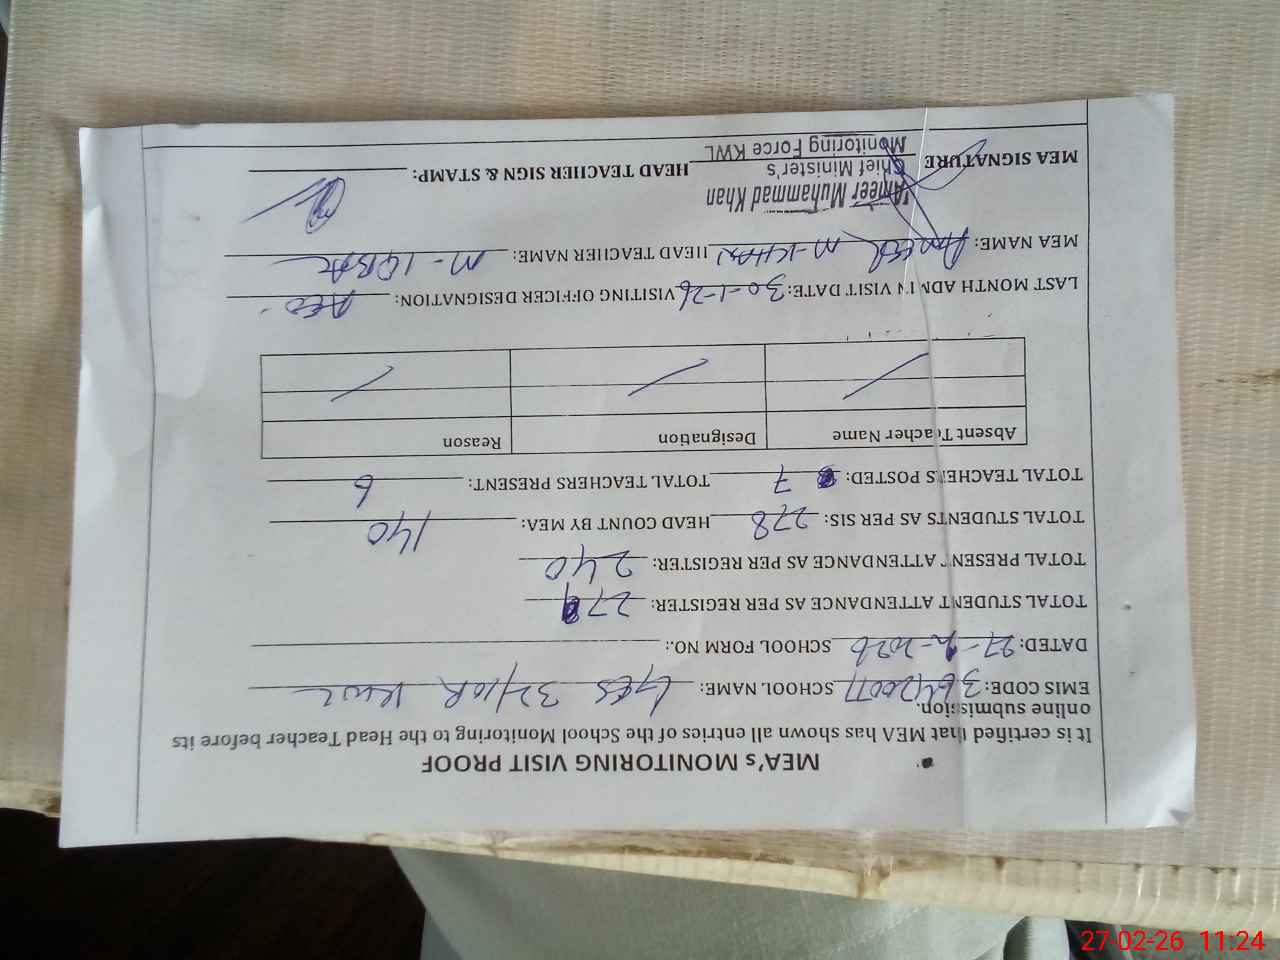 MEA's MONITORING VISIT PROOF
It is certified that MEA has shown all entries of the School Monitoring to the Head Teacher before its
online submission.
EMIS CODE: 36420077 SCHOOL NAME: GES 32/10R KWL
DATED: 27-2-2026 SCHOOL FORM NO.:
TOTAL STUDENT ATTENDANCE AS PER REGISTER: 279
TOTAL PRESENT ATTENDANCE AS PER REGISTER: 240
TOTAL STUDENTS AS PER SIS: 278 HEAD COUNT BY MEA: 140
TOTAL TEACHERS POSTED: 7 TOTAL TEACHERS PRESENT: 6
Absent Teacher Name Designation Reason
LAST MONTH ADMIN VISIT DATE: 30-1-26 VISITING OFFICER DESIGNATION: AEO
MEA NAME: Ameer M-KHAN HEAD TEACHER NAME: M-IQBAL
Ameer Muhammad Khan
Chief Minister's
MEA SIGNATURE HEAD TEACHER SIGN & STAMP:
Monitoring Force KWL
27-02-26 11:24